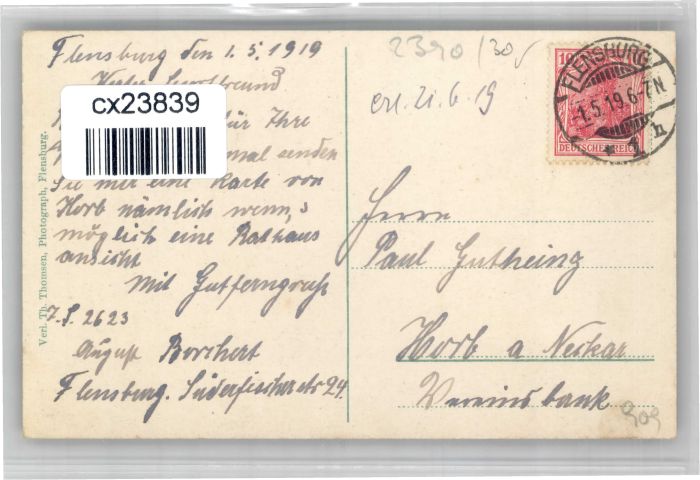 Flensburg den 1.5.1919
cx23839
für Ihre
mal senden
Sie mir eine Karte von
Horb nämlich wenn's
möglich eine Rathaus
ansicht
Mit Gutferngruß
2623
August Borchert
Flensburg. Süderfischerstr 24
Verl. Th. Thomsen, Photograph, Flensburg.
2390/30
erl. 21.6.19
10
DEUTSCHES REICH
FLENSBURG
-1.5.19.6-7N
* 1 n
Herrn
Paul Gutheing
Horb a Neckar
Vereinsbank
909